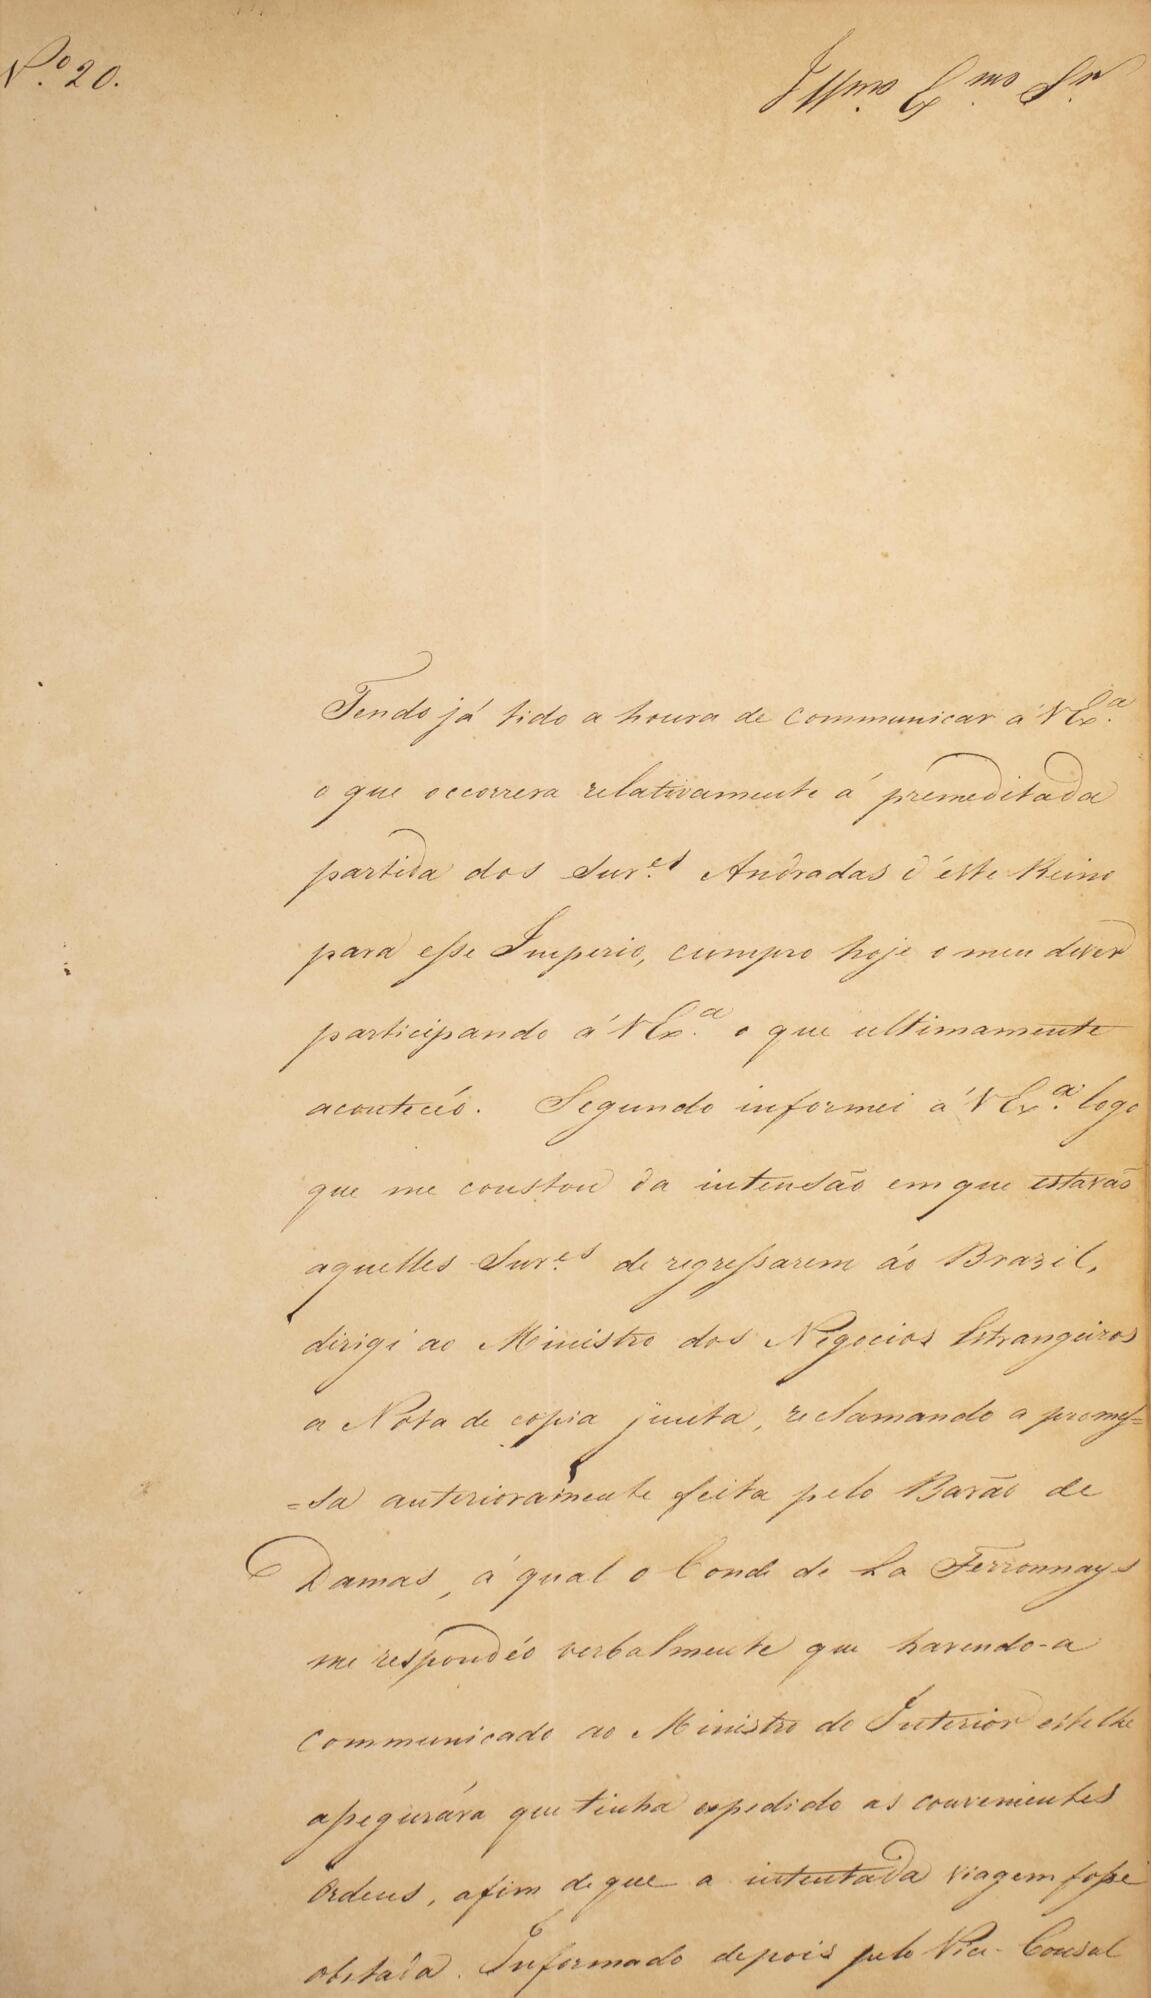 N.º 20.
Illmo. Exmo. Sr.
Tendo já tido a honra de communicar á VExª.
o que occorrera relativamente á premeditada
partida dos Snr.es Andradas d'éste Reino
para esse Imperio, cumpro hoje o meu dever
participando á VExª. o que ultimamente
acontecéo. Segundo informei á VExª. logo
que me constou da intensão em que estavão
aquelles Snr.es de regressarem áo Brazil,
dirigi ao Ministro dos Negocios Estrangeiros
a Nota de copia junta, reclamando a promes=
=sa anterioramente feita pelo Barão de
Damas, á qual o Conde de La Ferronnays
me respondéo verbalmente que havendo-a
communicado ao Ministro do Interior este lhe
assegurára que tinha expedido as convenientes
Ordens, afim de que a intentada viagem fosse
obstada. Informado depois pelo Vice-Consul